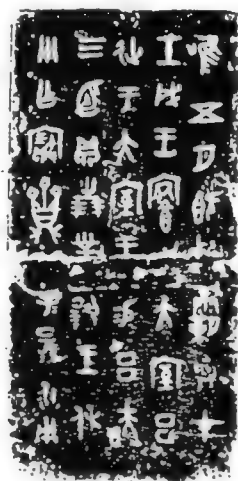 唯五月既死霸辰才
壬戌王饔于大室呂
征于大室王易呂𩰪
三卣貝卅朋對揚王休
用乍寶齋子子孫孫永用